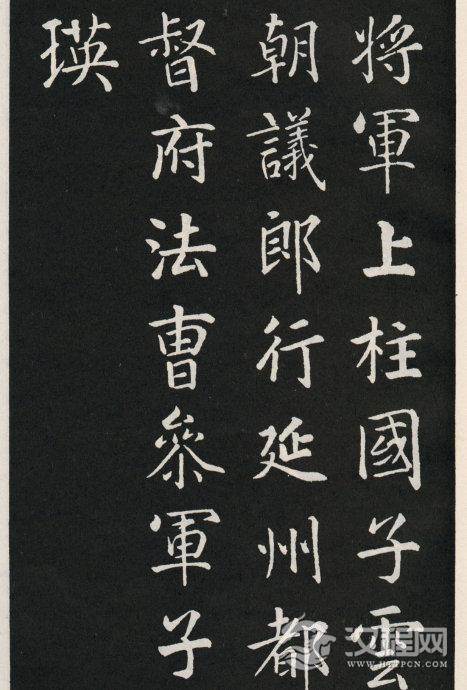 將軍上柱國子雲
朝議郎行延州都
督府法曹參軍子
瑛
汉程网
WWW.HTTPCN.COM